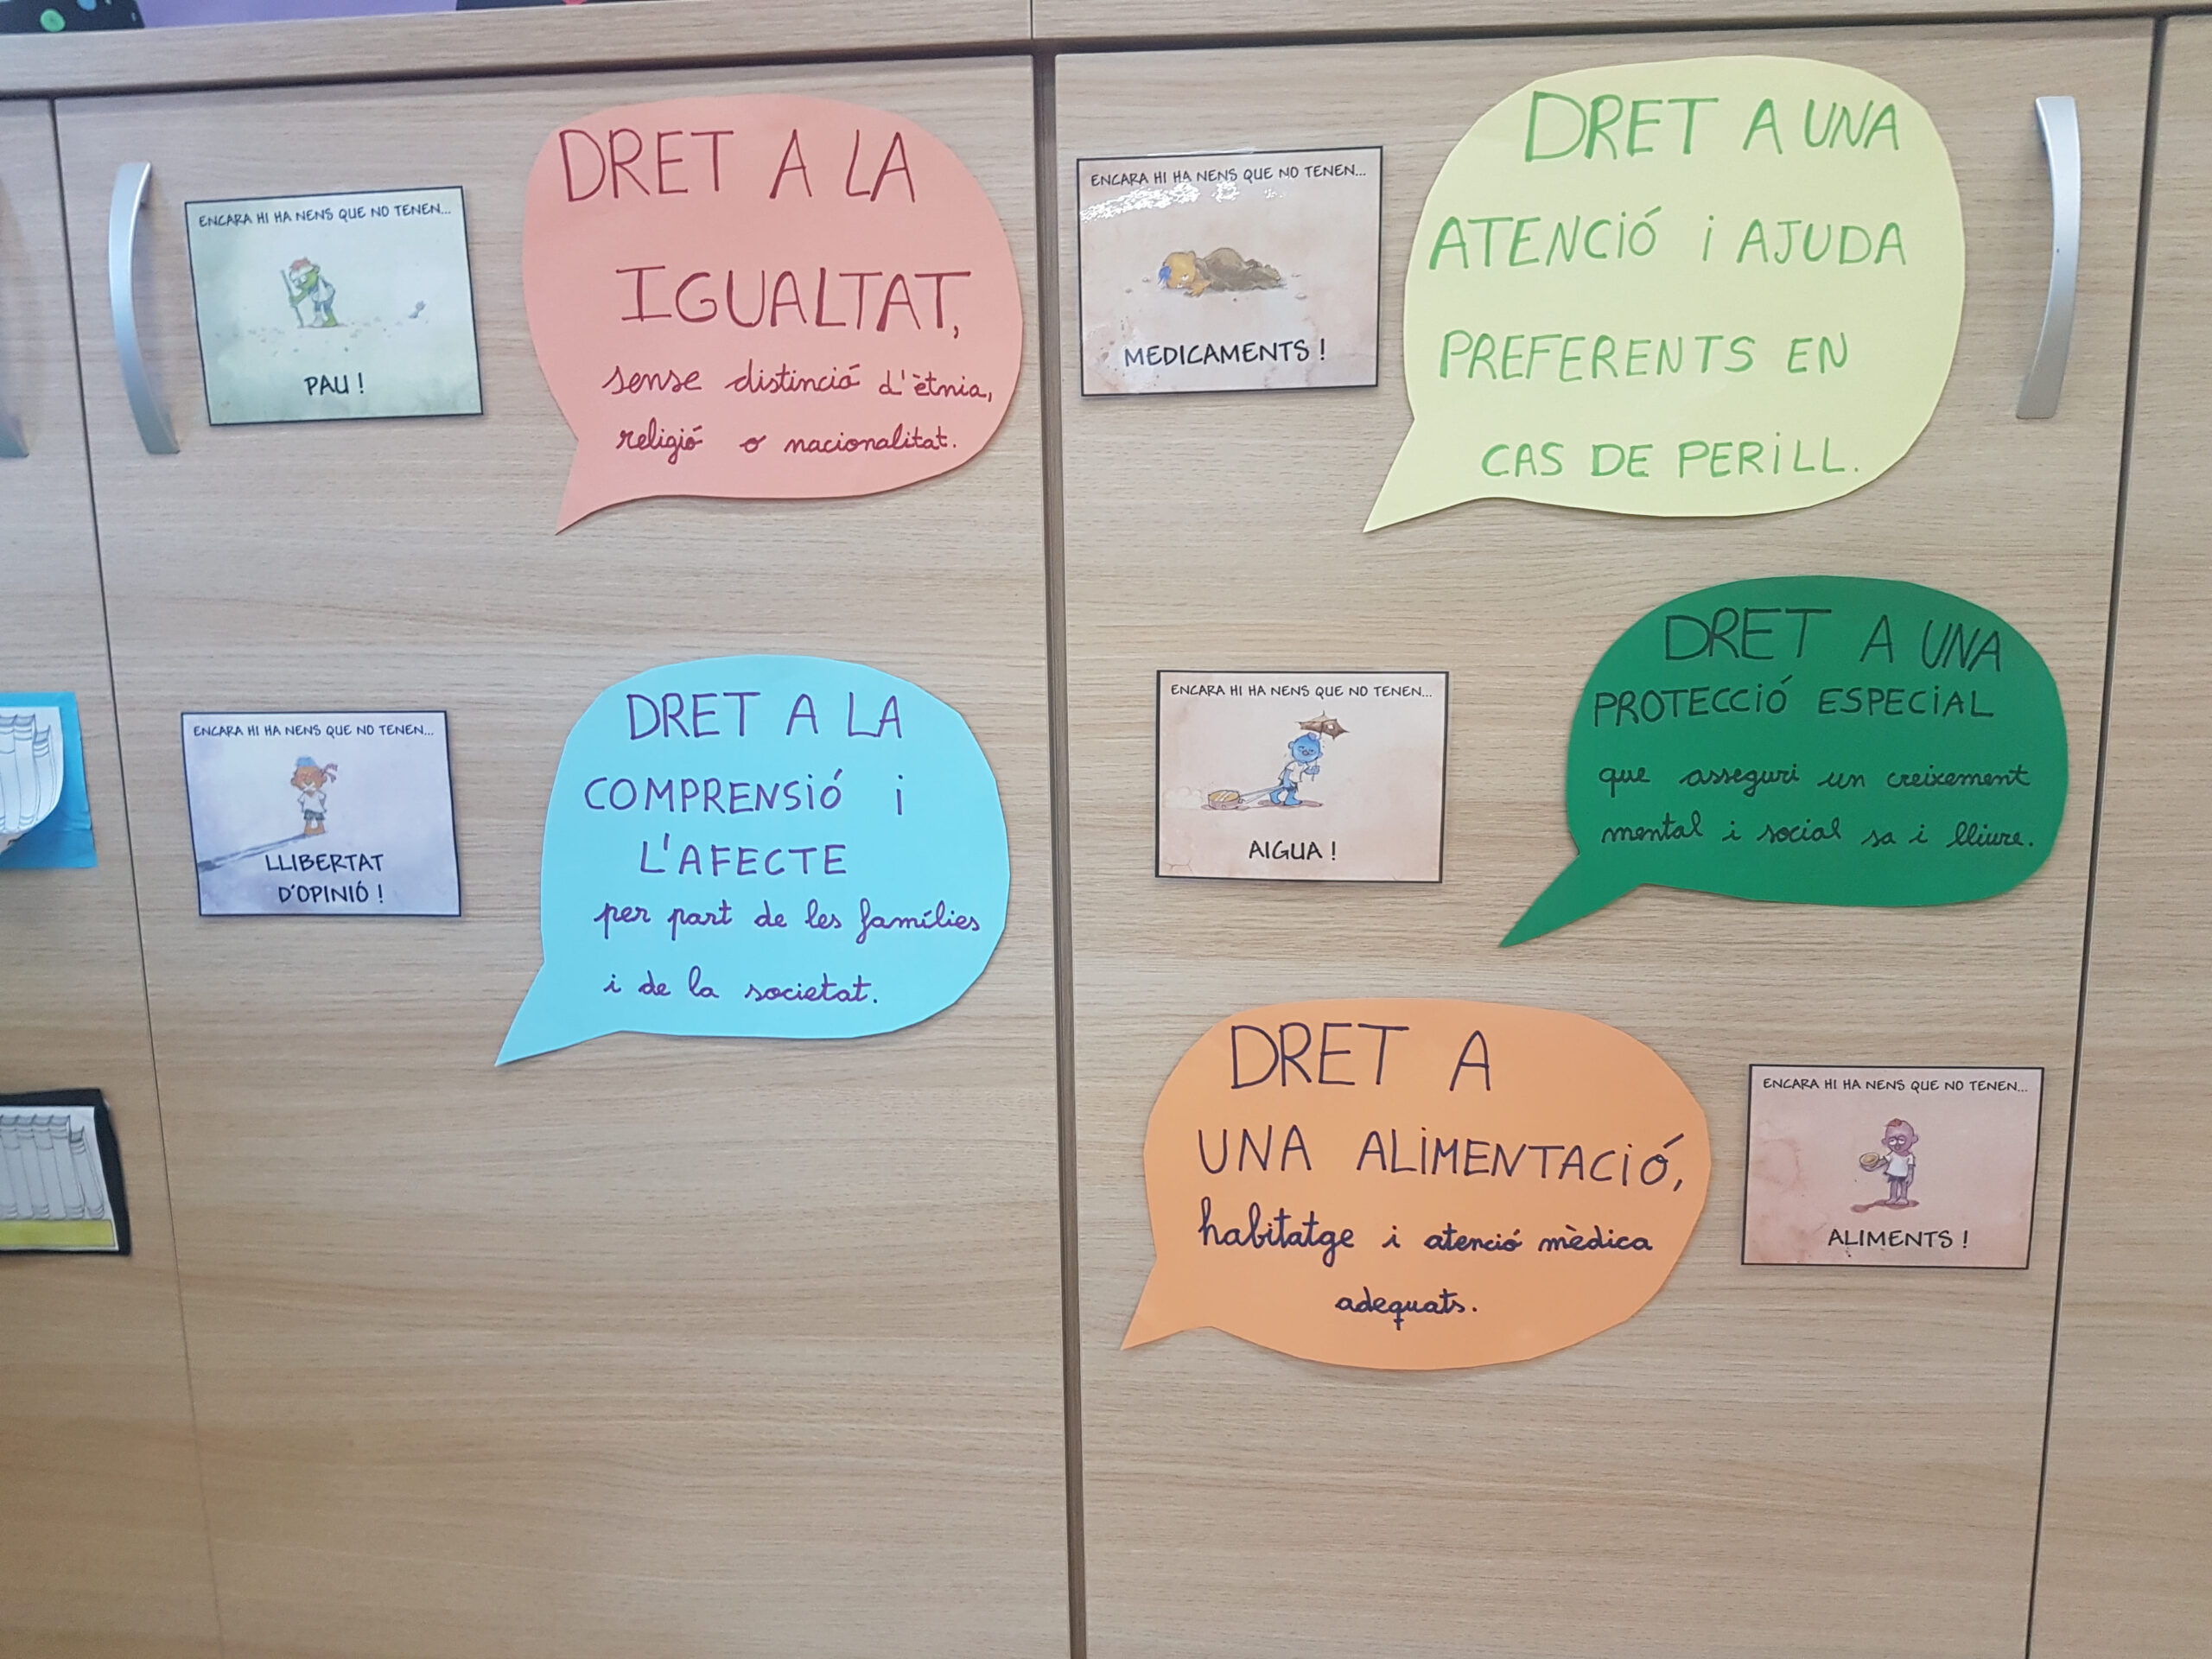 ENCARA HI HA NENS QUE NO TENEN...
PAU !
DRET A LA
IGUALTAT,
sense distinció d'ètnia,
religió o nacionalitat.
ENCARA HI HA NENS QUE NO TENEN...
LLIBERTAT
D'OPINIÓ !
DRET A LA
COMPRENSIÓ i
L'AFECTE
per part de les famílies
i de la societat.
ENCARA HI HA NENS QUE NO TENEN...
MEDICAMENTS !
DRET A UNA
ATENCIÓ i AJUDA
PREFERENTS EN
CAS DE PERILL.
ENCARA HI HA NENS QUE NO TENEN...
AIGUA !
DRET A UNA
PROTECCIÓ ESPECIAL
que asseguri un creixement
mental i social sa i lliure.
DRET A
UNA ALIMENTACIÓ,
habitatge i atenció mèdica
adequats.
ENCARA HI HA NENS QUE NO TENEN...
ALIMENTS !